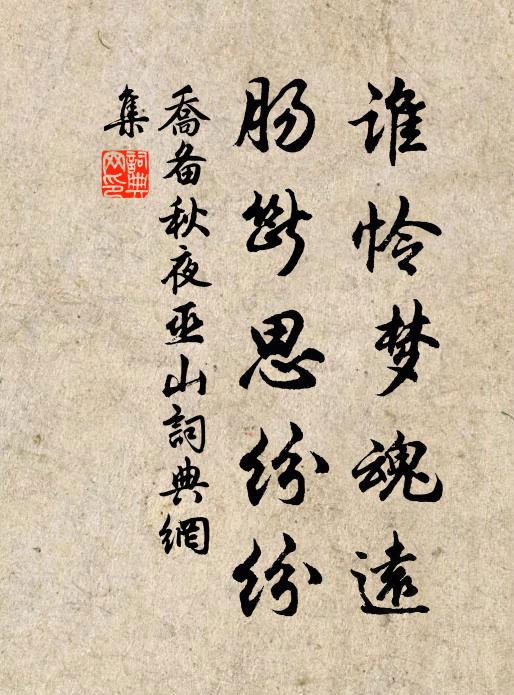 谁怜梦魂遠
肠斷思纷纷
喬备秋夜巫山詞典網
集
詞典
网印